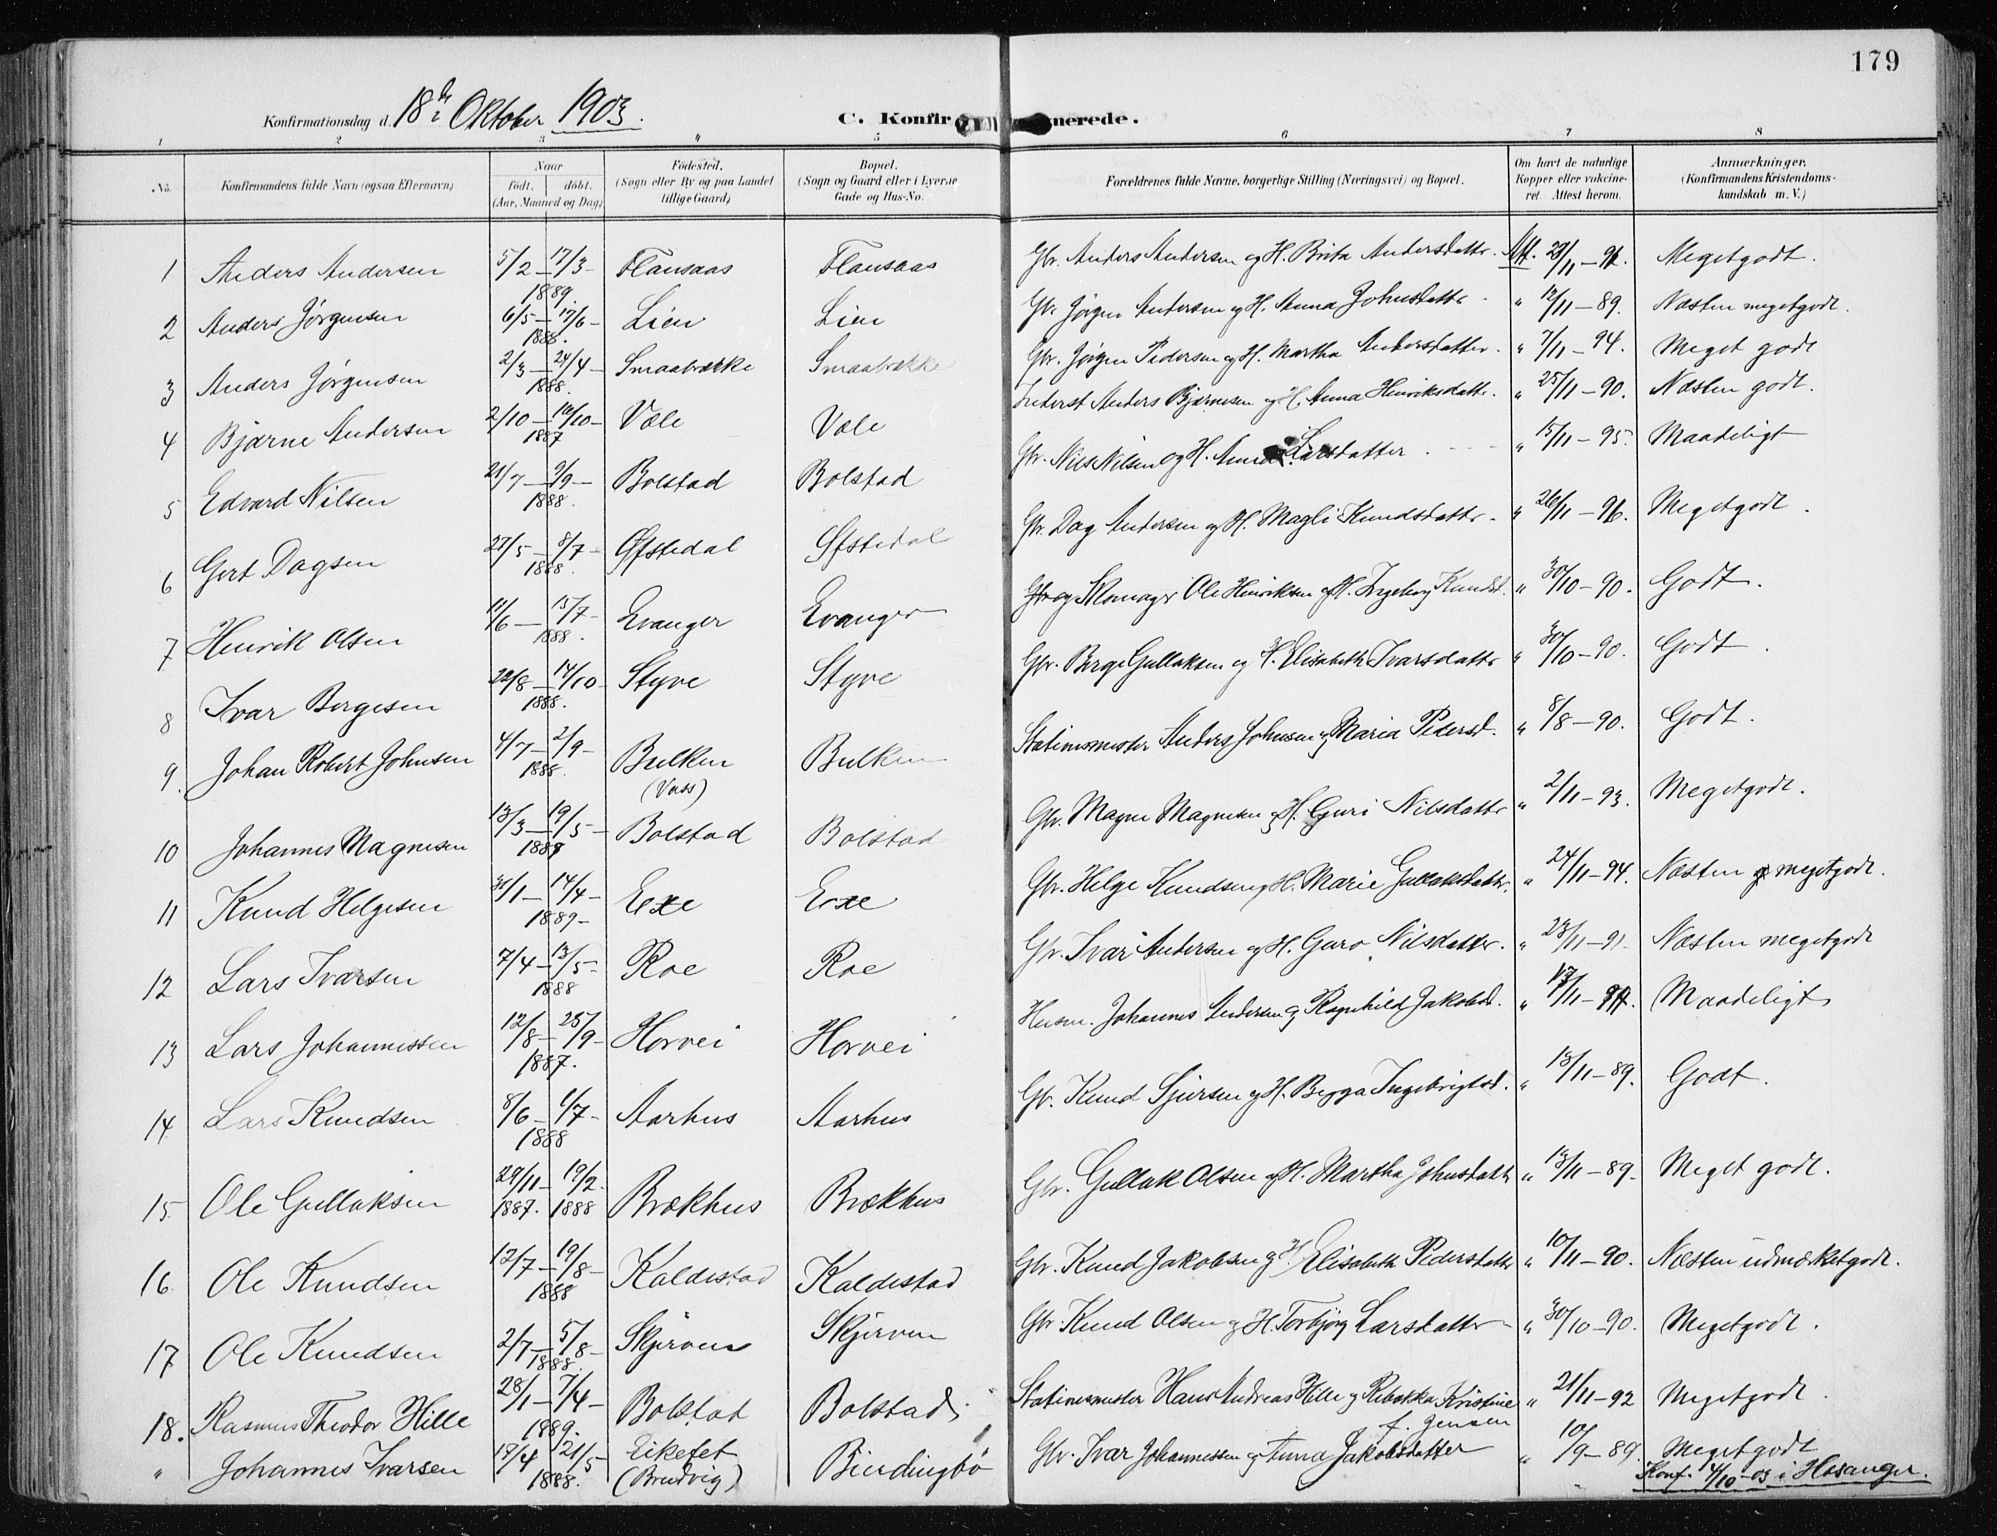 179
Konfirmationsdag d. 18de Oktober 1903.
C. Konfirmerede.
1 2 3 4 5 6 7 8
No. Konfirmandens fulde Navn (ogsaa Efternavn) Naar födt. döbt. (Aar, Maaned og Dag) Födested. (Sogn eller By og paa Landet tillige Gaard) Bopæl. (Sogn og Gaard eller i Byerne Gade og Hus-No. Forældrenes fulde Navne, borgerlige Stilling (Næringsvei) og Bopæl. Om havt de naturlige Kopper eller vakcineret. Attest herom. Anmærkninger. (Konfirmandens Kristendomskundskab m. V.)
1 Anders Andersen 5/2 – 17/3 – 1889. Flansaas Flansaas Gbr. Anders Andersen og H. Brita Andersdatter. Att. 29/11 – 91. Megetgodt.
2 Anders Jørgensen 6/5 – 17/6 – 1888. Lien Lien Gbr. Jørgen Andersen og H. Anna Johnsdatter " 12/11 – 89. Næsten megetgodt.
3 Anders Jørgensen 2/3 – 24/4 – 1888. Smaabrække Smaabrække Gbr. Jørgen Pedersen og H. Martha Andersdatter. " 7/11 – 94. Meget godt
4 Bjarne Andersen 2/10 – 16/10 – 1887 Væle Væle Inderst Anders Bjarnesen og H. Anna Henriksdatter. " 25/11 – 90. Næsten godt.
5 Edvard Nilsen 21/7 – 9/9 – 1888. Bolstad Bolstad Gbr. Nils Nilsen og H. Anna Larsdatter " 15/11 – 95. Maadeligt
6 Gert Dagsen 27/5 – 8/7 – 1888. Øfstedal Øfstedal Gbr. Dag Andersen og H. Magli Knudsdatter. " 26/11 – 96. Megetgodt.
7 Henrik Olsen 11/6 – 15/7 – 1888. Evanger Evanger Gbr og Skomager Ole Henriksen og H. Ingeborg Knudsd. " 30/10 – 90. Godt.
8 Ivar Bergesen 22/8 – 14/10 – 1888. Styve Styve Gbr. Berge Gullaksen og H. Elisabeth Ivarsdatter " 30/10 – 90. Godt.
9. Johan Robert Johnsen 4/7 – 2/9 – 1888. Bulken (Voss) Bulken Stationsmester Anders Johnsen og Maria Pedersd. " 8/8 – 90. Godt.
10 Johannes Magnesen 13/3 – 19/5 – 1889 Bolstad Bolstad Gbr. Magne Magnesen og H. Guri Nilsdatter " 2/11 – 93. Megetgodt.
11 Knud Helgesen 31/1 – 14/4 – 1889 – Exe Exe Gbr. Helge Knudsen og H. Marie Gullaksdatter. " 24/11 – 94. Næsten megetgodt.
12 Lars Ivarsen 7/4 – 13/5 – 1888 Roe Roe Gbr. Ivar Andersen og H. Guro Nilsdatter. " 23/11 – 91. Næsten megetgodt
13 Lars Johannessen 12/8 – 25/9 – 1887. Horvei Horvei Husm. Johannes Andersen og Ragnhild Jakobsd. " 17/11 – Maadeligt
14 Lars Knudsen 8/6 – 1/7 – 1888 Aarhus Aarhus Gbr. Knud Sjursen og H. Begga Ingebrigtsd. " 13/11 – 89. Godt.
15 Ole Gullaksen 29/11 – 1887. 19/2 – 1888 Brækhus Brækhus Gbr. Gullak Olsen og H. Martha Johnsdatter " 13/11 – 89. Meget godt.
16 Ole Knudsen 12/7 – 19/8 – 1888 Kaldestad Kaldestad Gbr. Knud Jakobsen og H. Elisabeth Pedersdatter " 10/11 – 90. Næsten udmærketgodt.
17 Ole Knudsen 2/7 – 5/8 – 1888. Skjerven Skjerven Gbr Knud Olsen og H. Torbjørg Larsdatter " 30/10 – 90. Megetgodt.
18. Rasmus Theodor Hille 28/1 – 7/4 – 1889. Bolstad Bolstad. Stationsmester Hans Andreas Hille og Rebekka Kristine f. Jensen " 21/11 – 92 Megetgodt.
" Johannes Ivarsen 18/4 – 21/5 1888. Eiketet (Brudvig) Bierdingbø Gbr. Ivar Johannessen og Anna Jakobsdatter " 10/9 – 89. Megetgodt
Konf. 4/10-03 i Hosanger.